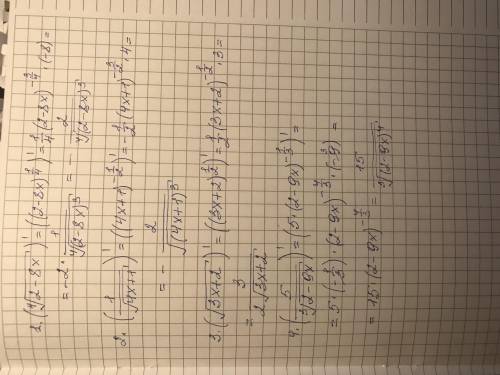 1. (⁴√(2-8x))' = ((2-8x)^(1/4))' = 1/4 (2-8x)^(-3/4) · (-8) =
= -2 · 1/⁴√(2-8x)³ = - 2/⁴√(2-8x)³
2. (1/√(4x+1))' = ((4x+1)^(-1/2))' = -1/2 (4x+1)^(-3/2) · 4 =
= - 2/√(4x+1)³
3. (√(3x+2))' = ((3x+2)^(1/2))' = 1/2 (3x+2)^(-1/2) · 3 =
= 3/2√(3x+2)
4. (5/³√(2-9x))' = (5 · (2-9x)^(-1/3))' =
= 5 · (-1/3) · (2-9x)^(-4/3) · (-9) =
= 15 · (2-9x)^(-4/3) = 15/³√(2-9x)⁴